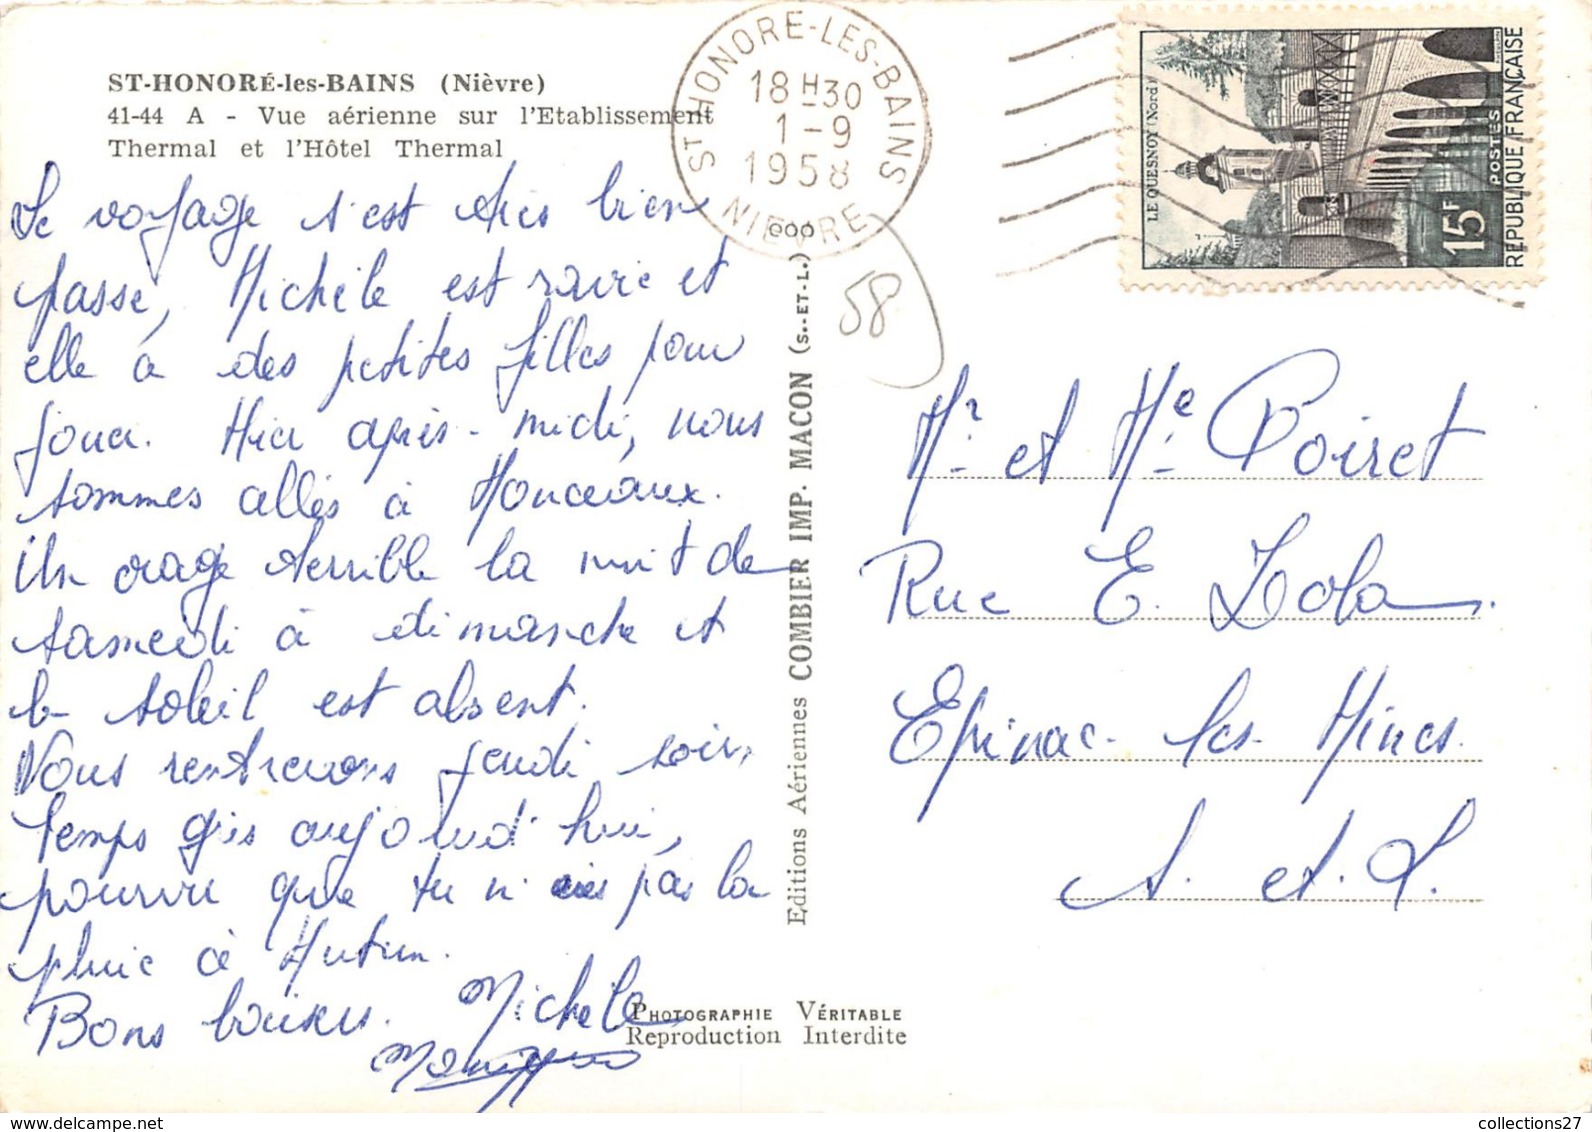 ST-HONORÉ-les-BAINS (Nièvre)
41-44 A - Vue aérienne sur l'Etablissement
Thermal et l'Hôtel Thermal
Le voyage s'est très bien
passé, Michèle est ravie et
elle à des petites filles pour
jouer. Hier après-midi, nous
sommes allés à Monceaux.
Un orage terrible la nuit de
samedi à dimanche et
le soleil est absent.
Nous rentrerons jeudi soir,
temps gris aujourd'hui,
pourvu que tu n'aies pas la
pluie à Autun.
Bons baisers. Michèle
ST HONORE-LES-BAINS
18 H 30
1-9
1958
NIEVRE
58
LE QUESNOY (Nord)
15F
POSTES
REPUBLIQUE FRANÇAISE
Editions Aériennes COMBIER IMP. MACON (S.-ET-L.)
Mr. et Me. Poiret
Rue E. Zola.
Epinac-les-Mines.
S. et. L.
PHOTOGRAPHIE VÉRITABLE
Reproduction Interdite
collections27